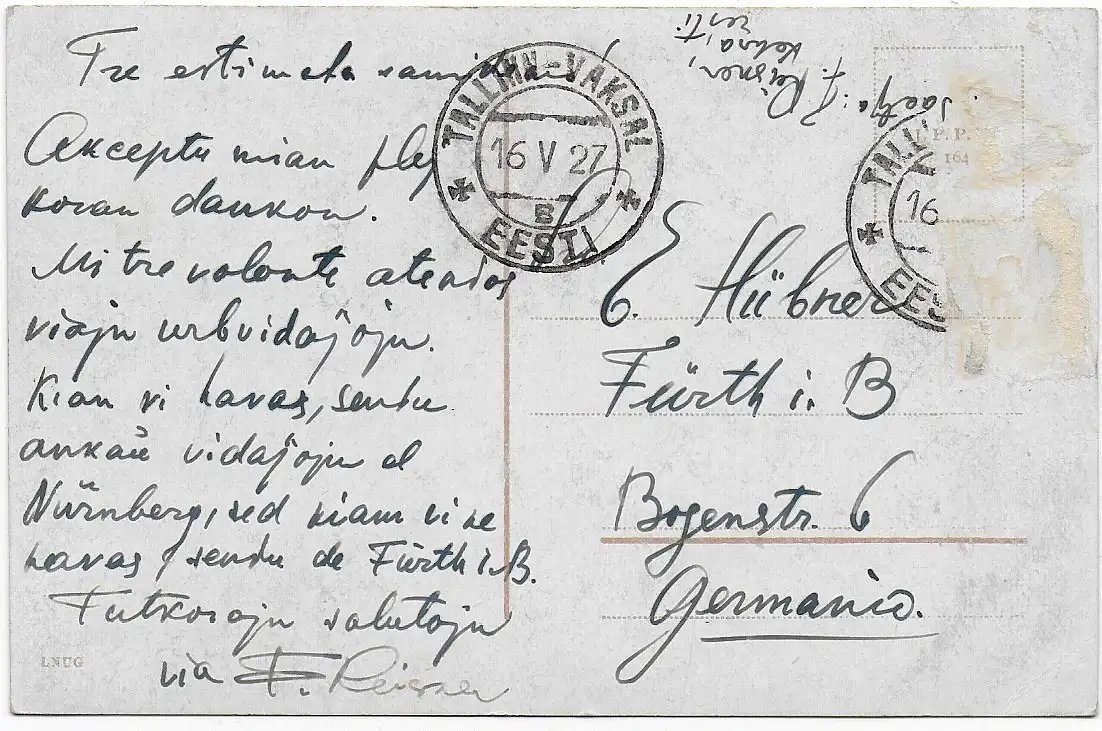 Tre estimata
Akceptu mian plej
koran dankon.
Mi tre volonte atendos
viajn urbvidaĵojn.
Kian vi havas, sendu
ankaŭ vidaĵojn el
Nürnberg, sed kiam vi ne
havas, sendu de Fürth i. B.
Tutkorajn salutojn
via F. Reisner
LNUG
TALLINN-VAKSAL
16 V 27
B
EESTI
Saatja: F. Reisner,
Kehra,
Eesti
U. P. P.
164
TALLI
16
EES
E. Hübner
Fürth i. B
Bogenstr. 6
Germanio.